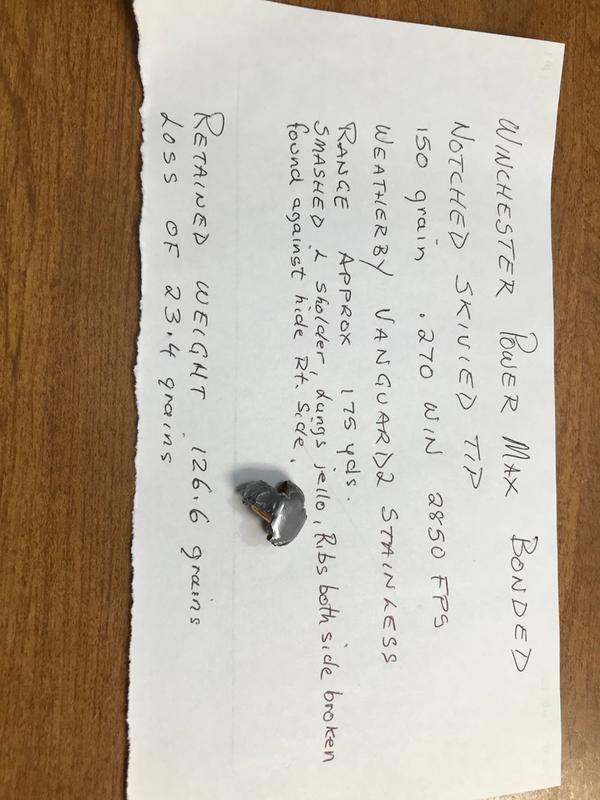 WINCHESTER POWER MAX BONDED
NOTCHED SKIVIED TIP
150 grain .270 WIN 2850 FPS
WEATHERBY VANGUARD2 STAINLESS
RANGE APPROX 175 yds.
SMASHED L sholder, Lungs jello, Ribs both side broken
found against hide Rt. Side.
RETAINED WEIGHT 126.6 grains
LOSS OF 23.4 grains